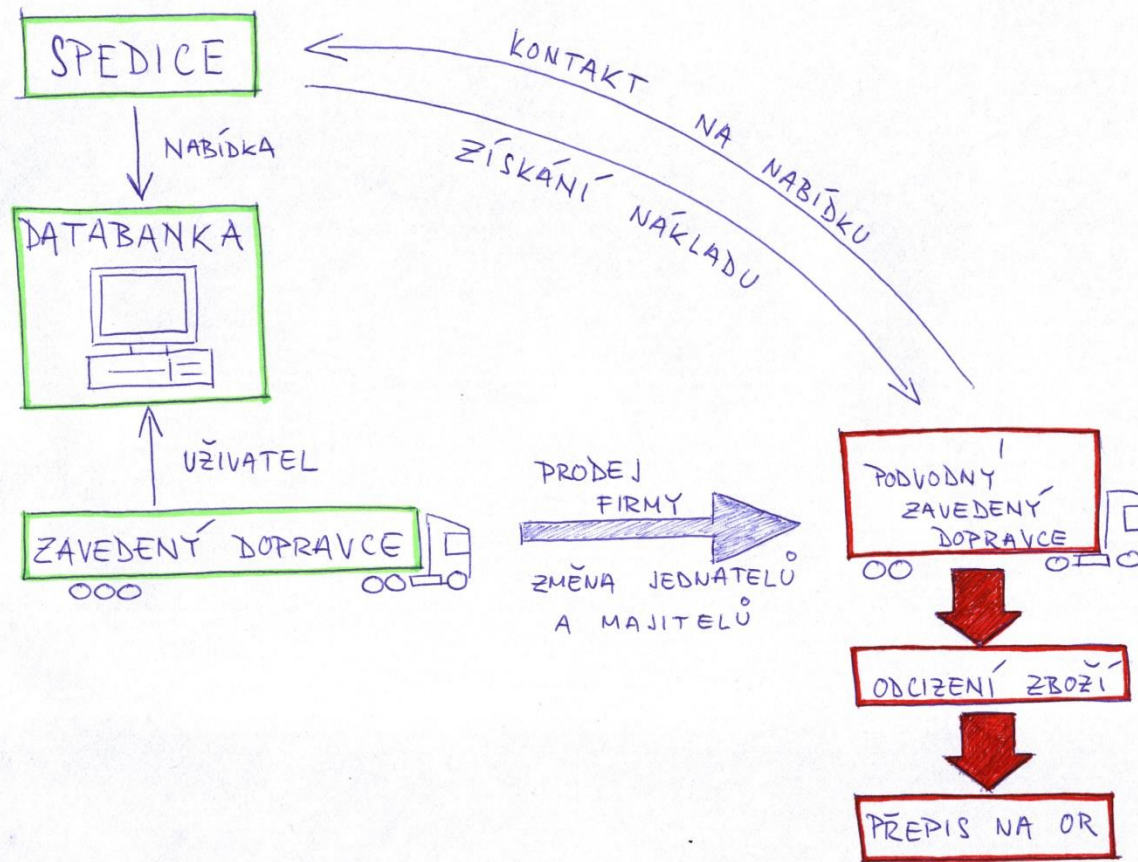 SPEDICE
NABÍDKA
DATABANKA
UŽIVATEL
ZAVEDENÝ DOPRAVCE
KONTAKT NA NABÍDKU
ZÍSKÁNÍ NÁKLADU
PRODEJ
FIRMY
ZMĚNA JEDNATELŮ
A MAJITELŮ
PODVODNÝ
ZAVEDENÝ
DOPRAVCE
ODCIZENÍ ZBOŽÍ
PŘEPIS NA OR